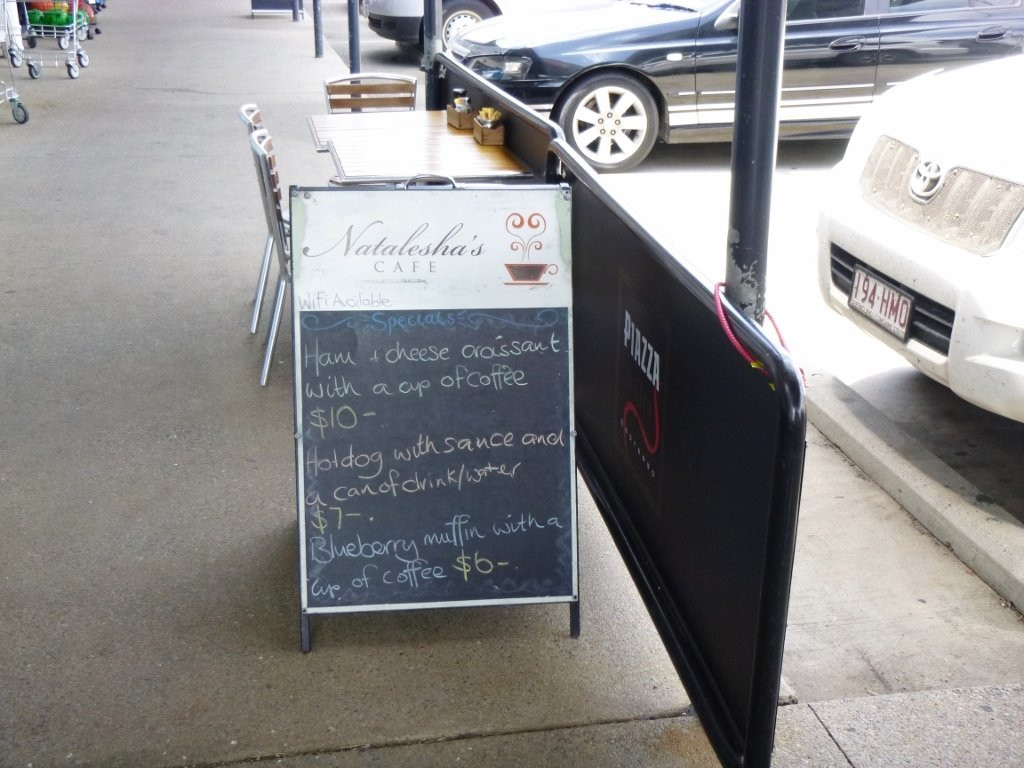 Natalesha's
CAFE
WiFi Available
Specials
Ham + cheese croissant
with a cup of coffee
$10-
Hotdog with sauce and
a can of drink/water
$7-.
Blueberry muffin with a
cup of coffee $6-
PIAZZA
194-HMD